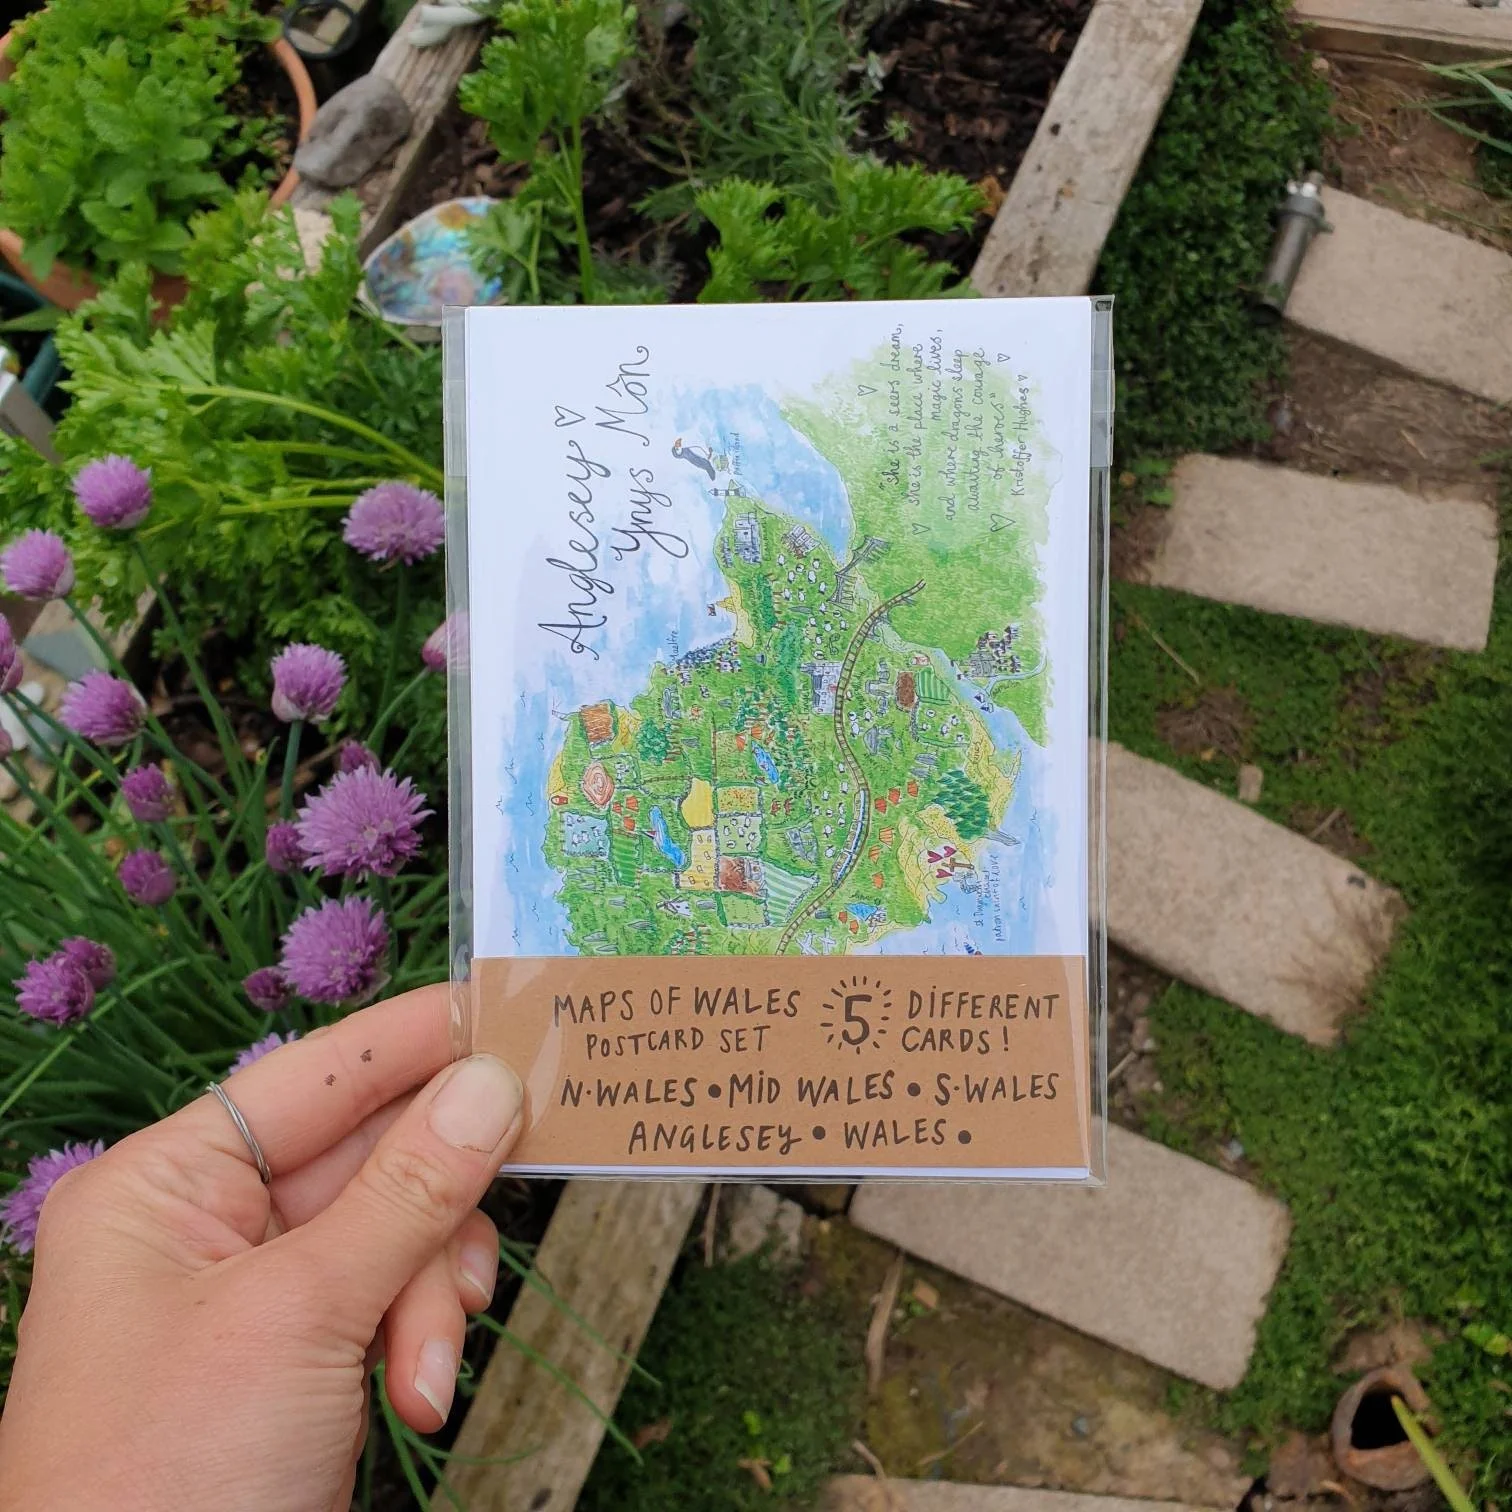 Anglesey ♡
Ynys Môn
"She is a seers dream,
She is the place where
magic lives,
and where dragons sleep
awaiting the courage
of heroes"
Kristoffer Hughes ♡
MAPS OF WALES
POSTCARD SET
5
DIFFERENT
CARDS!
N·WALES • MID WALES • S·WALES
ANGLESEY • WALES •